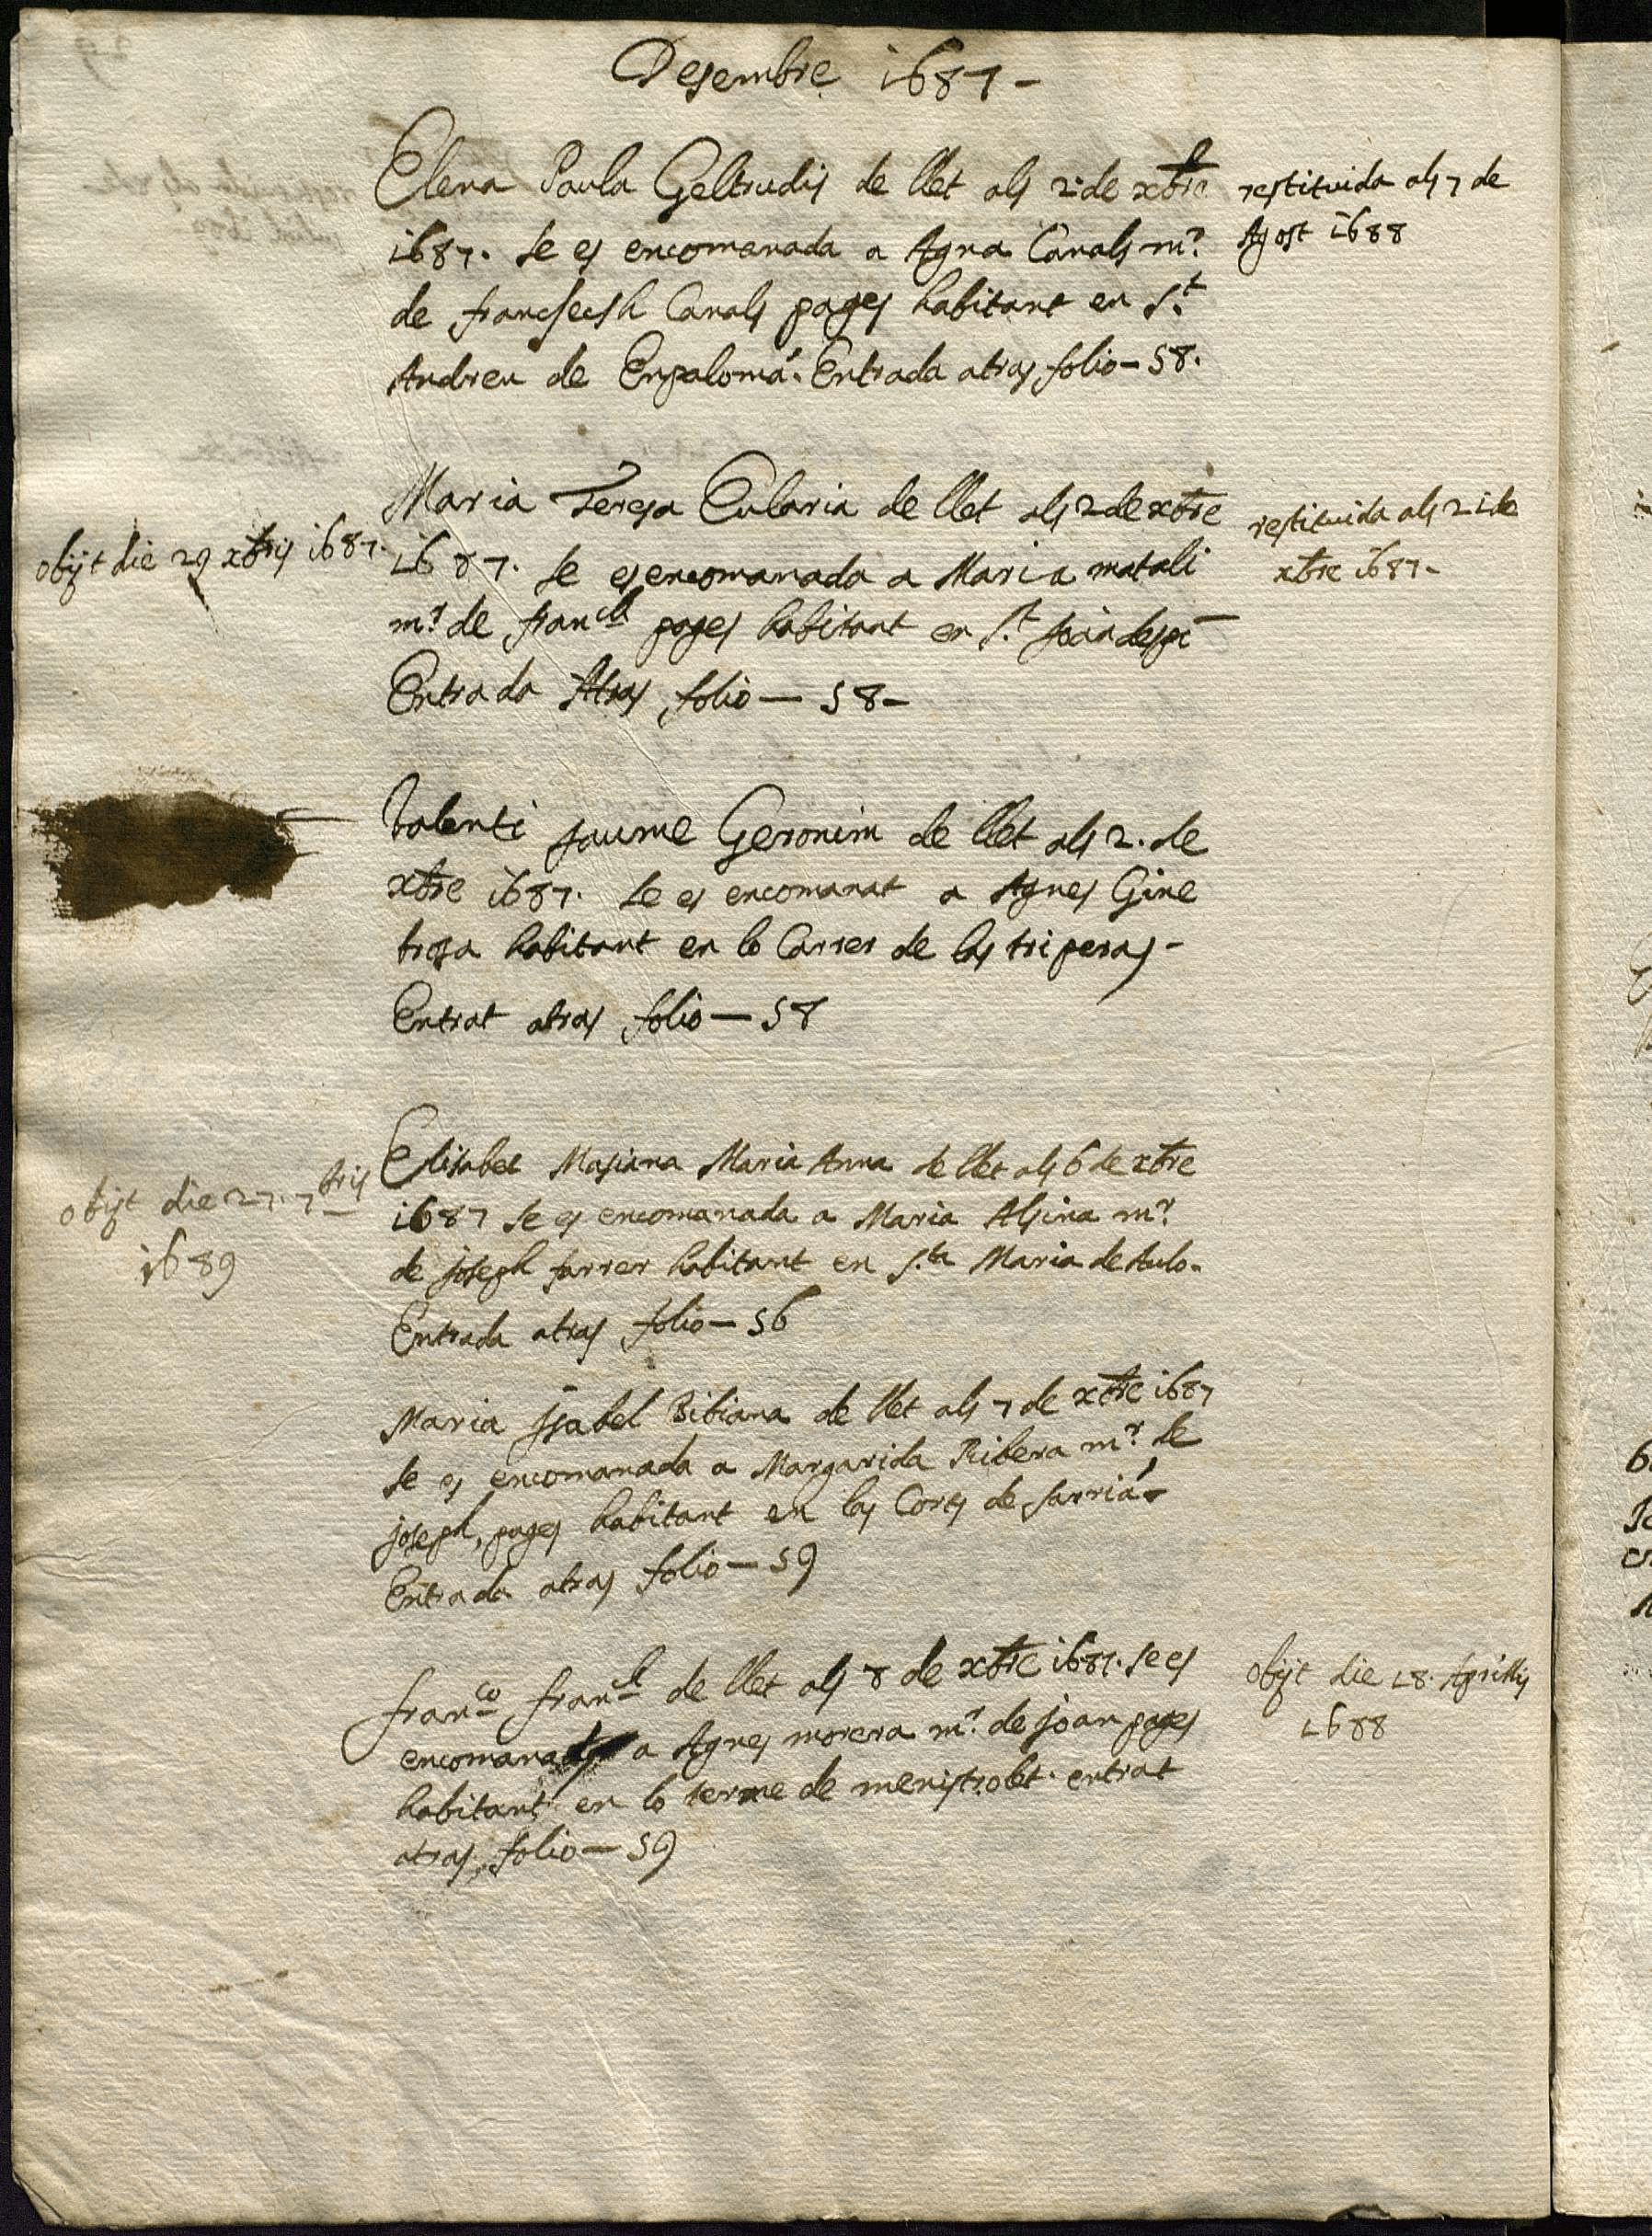 Desembre 1687 -
Elena Paula Geltrudis de llet als 2 de xbre
1687. se es encomanada a Agna Canals mr.
de francsecsh Canals pages habitant en St.
Andreu de Enpalomá. Entrada atras folio - 58.
restituida als 7 de
Agost 1688
Maria Teresa Eularia de llet als 2 de xbre
1687. se es encomanada a Maria matali
mr. de franch pages habitant en St. Joan despi
Entrada Atras folio - 58 -
obijt die 29 xbris 1687.
restituida als 21 de
xbre 1687 -
Valenti Jaume Geronim de llet als 2. de
xbre 1687. se es encomanat a Agnes Gine
trosa habitant en lo Carrer de las triperas -
Entrat atras folio - 58
Elisabet Masiana Maria Anna de llet als 6 de xbre
1687 se es encomanada a Maria Alsina mr.
de joseph farrer habitant en Sta. Maria de Aulo.
Entrada atras folio - 56
obijt die 27. 7bris
1689
Maria Isabel Bibiana de llet als 7 de xbre 1687
se es encomanada a Margarida Ribera mr. de
joseph, pages habitant en las Corts de sarriá
Entrada atras folio - 59
franco franch de llet als 8 de xbre 1687. se es
encomanat a Agnes morera mr. de joan pages
habitant en lo terme de menistrolet. entrat
atras folio - 59
obijt die 18. Aprillis
1688